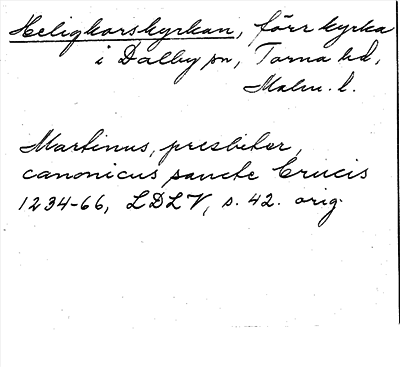 Heligkorskyrkan, förr kyrka
i Dalby sn, Torna hd,
Malm. l.
Martinus, presbiter,
canonicus sancte Crucis
1234-66, LDLV, s. 42. orig.